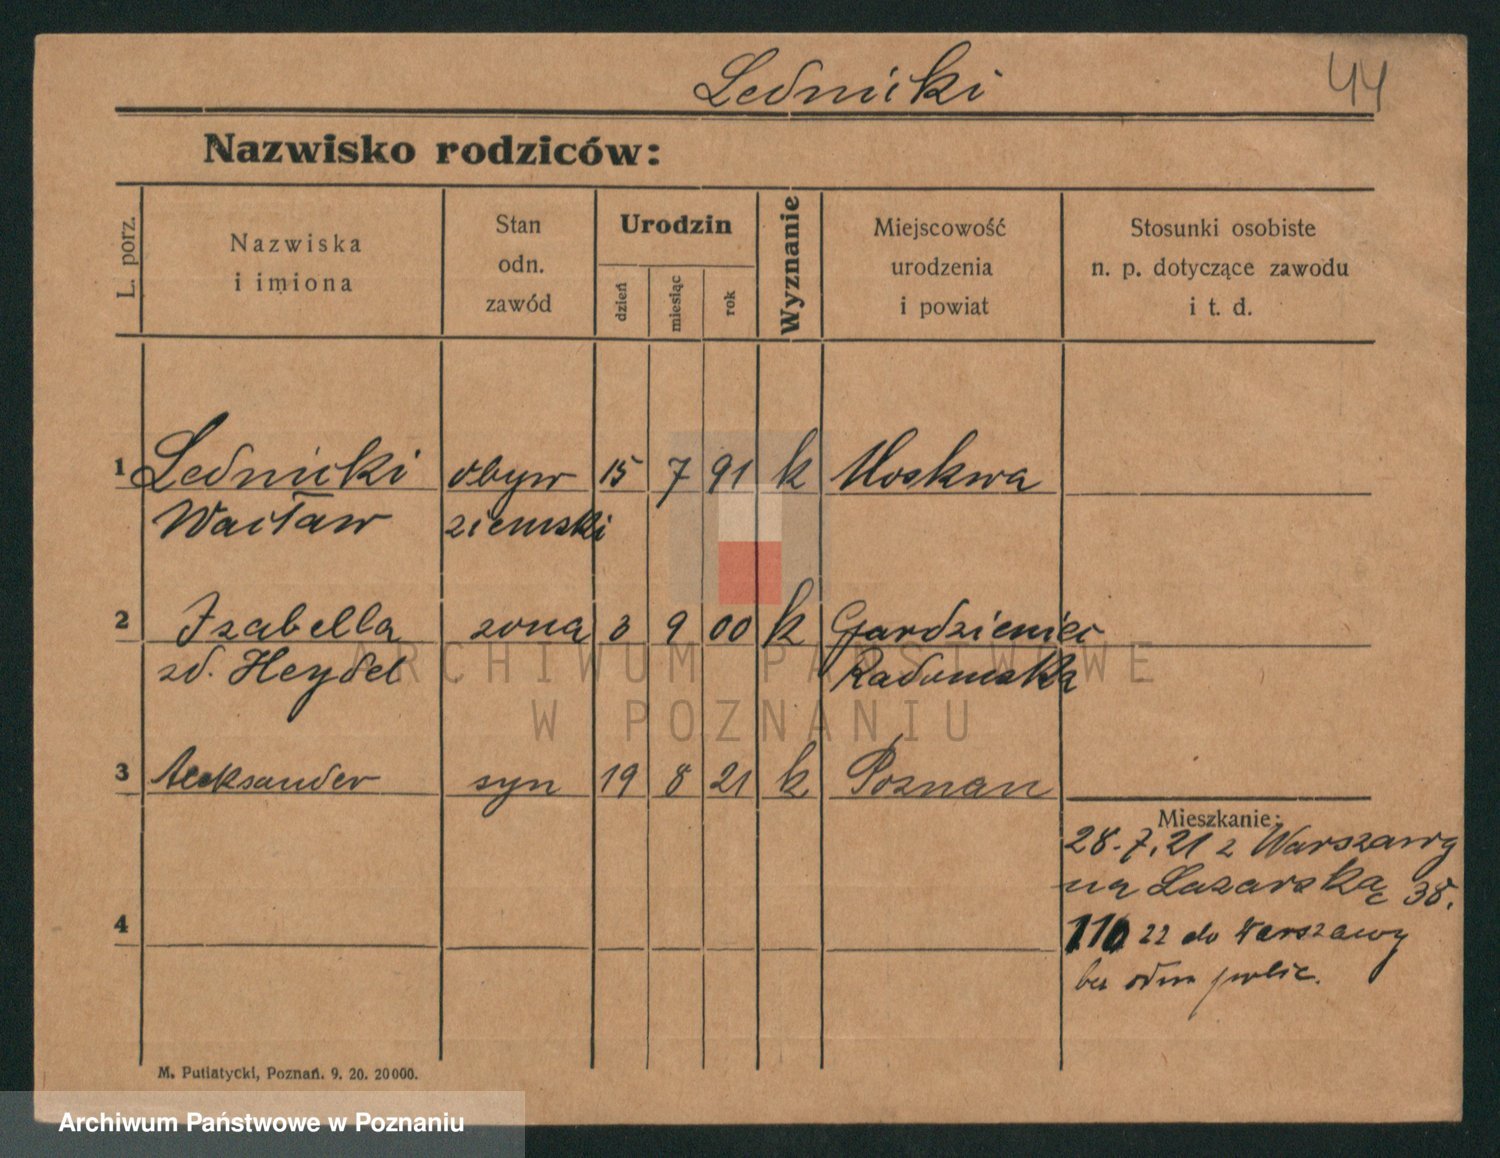 Lednicki
44
Nazwisko rodziców:
L. porz.
Nazwiska
i imiona
Stan
odn.
zawód
Urodzin
dzień
miesiąc
rok
Wyznanie
Miejscowość
urodzenia
i powiat
Stosunki osobiste
n. p. dotyczące zawodu
i t. d.
1 Lednicki obyw 15 7 91 k Moskwa
Wacław ziemski
2 Izabella żona 3 9 00 k Gardzieniec
zd. Heydel Radomska
3 Aleksander syn 19 8 21 k Poznan
Mieszkanie:
28.7.21 z Warszawy
na Łazarską 38.
4
1 10 22 do Warszawy
bez odm polic.
M. Putiatycki, Poznań. 9. 20. 20000.
ARCHIWUM PAŃSTWOWE
W POZNANIU
Archiwum Państwowe w Poznaniu